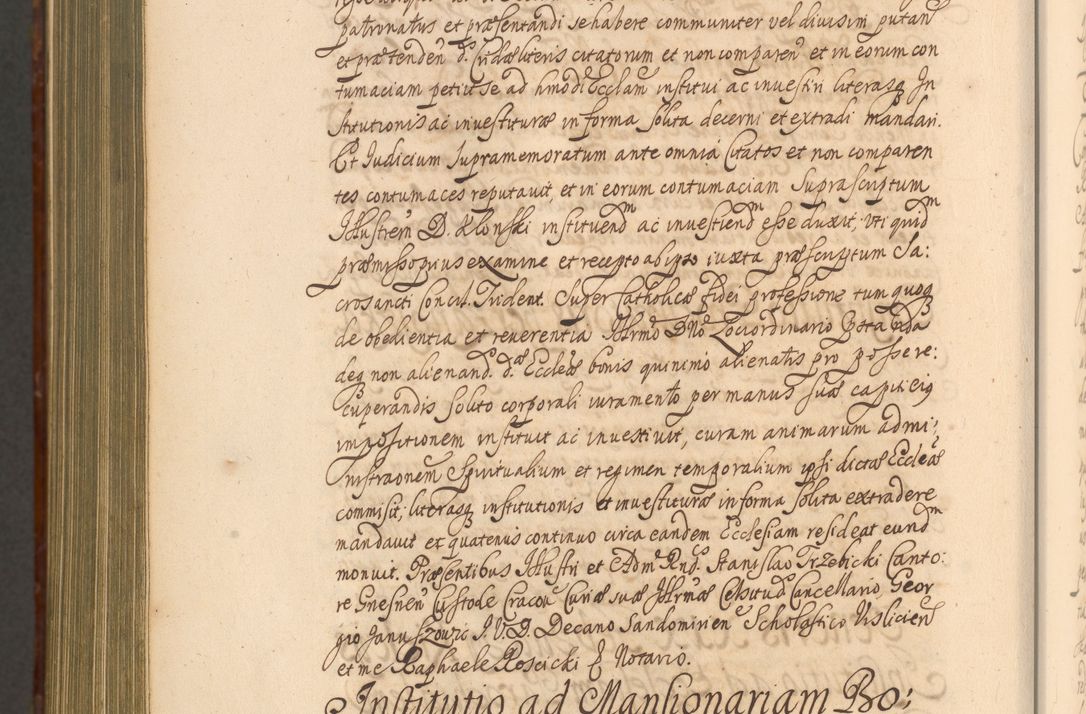 patronatus et præsentandi se habere communiter vel diuisim putan
et prætenden d. Crudæ literis citatorum et non comparen et in eorum con
tumaciam petiit se ad hmodi Ecclam institui ac inuestiri literasq In
stitutionis ac inuestituræ in forma solita decerni et extradi mandari.
Et Iudicium supramemoratum ante omnia citatos et non comparen
tes contumaces reputauit, et in eorum contumaciam suprascriptum
Illustrem D. Klonski instituendm ac inuestiendm esse duxit, uti quidm
præmisso prius examine et recepto ab ipso iuxta præscriptum Sa:
crosancti Concil. Trident. super Catholicæ Fidei professione tum quoq
de obedientia et reuerentia Illrmo Dno Loci ordinario præstanda
deq non alienand. dæ Ecclæ bonis quinimo alienatis pro posse re:
cuperandis solito corporali iuramento per manus suæ capiti eiq
impositionem instituit ac inuestiuit, curam animarum admi:
nistraonem Spiritualium et regimen temporalium ipsi dictæ Eccleæ
commisit, literasq institutionis et inuestituræ in forma solita extradere
mandauit et quatenus continuo circa eandem Ecclesiam resideat eundm
monuit. Præsentibus Illustri et Adm Rndis Stanislao Trzebicki Canto:
re Gnesnen Custode Cracou Curiæ suæ Illrmæ Celsitud Cancellario, Geor
gio Januszowic I. V. D. Decano Sandomirien Scholastico Vislicien
et me Raphaele Roscicki p Notario.
Institutio ad Mansionariam Bo: